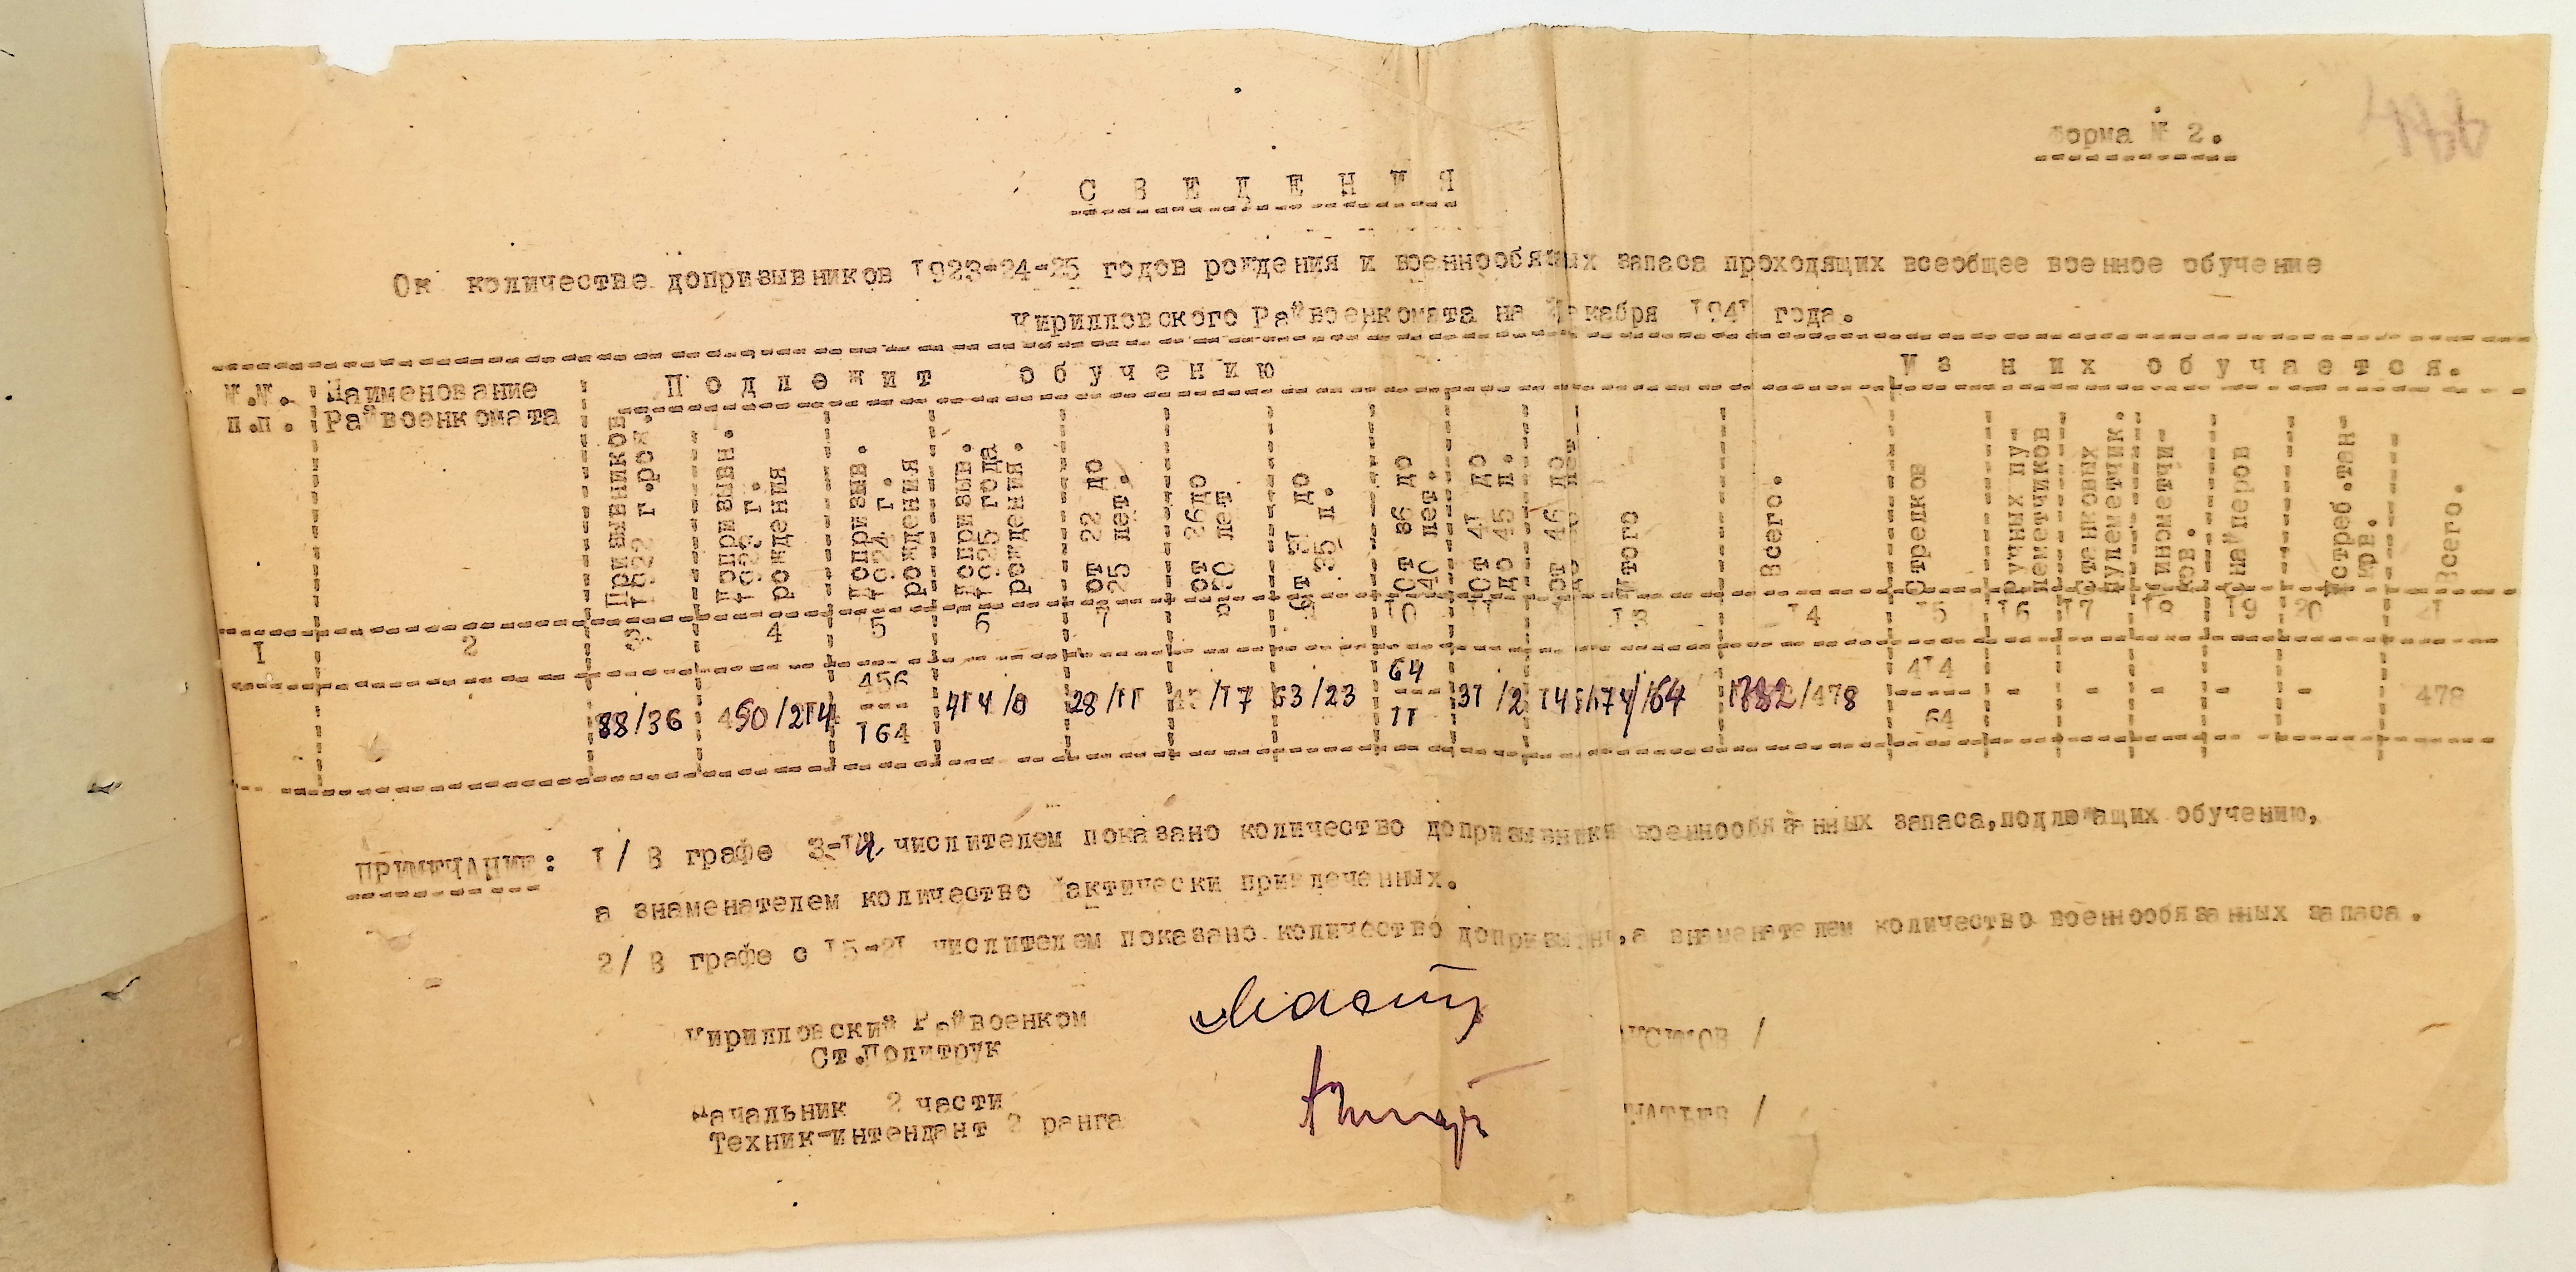 Форма № 2.
С В Е Д Е Н И Я
Ок количестве допризывников 1923-24-25 годов рождения и военнообязаных запаса проходящих всеобщее военное обучение
Кирилловского Райвоенкомата на декабря 1941 года.
№.№. п.п.
Наименование Райвоенкомата
П о д л е ж и т о б у ч е н и ю
И з н и х о б у ч а е т с я.
Призывников 1922 г.рож.
Допризывн. 1923 г. рождения
Допризыв. 1924 г. рождения
Допризыв. 1925 года рождения.
от 22 до 25 лет.
от 26до 30 лет
от 31 до 35 л.
От 36 до 40 лет.
От 41 до 45 л.
от 46 до лет
Итого
Всего.
Стрелков
Ручных пулеметчиков
Станковых пулеметчик.
Минометчиков.
Снайперов
Истреб.танков.
Всего.
I 2 3 4 5 6 7 8 9 10 11 13 14 15 16 17 18 19 20 21
88/36 450/214 456/164 414/0 28/11 /17 63/23 64/11 31/2 /64 1782/478 414/64 - - - - - 478
ПРИМЕЧАНИЕ: 1/ В графе 3-14 числителем показано количество допризывники военнообязанных запаса,подлежащих обучению,
а знаменателем количество фактически привлеченных.
2/ В графе с 15-21 числителем показано количество допризывн,а знаменателем количество военнообязанных запаса.
Кирилловский Райвоенком
Ст.Политрук
/
Начальник 2 части
Техник-интендант 2 ранга
/